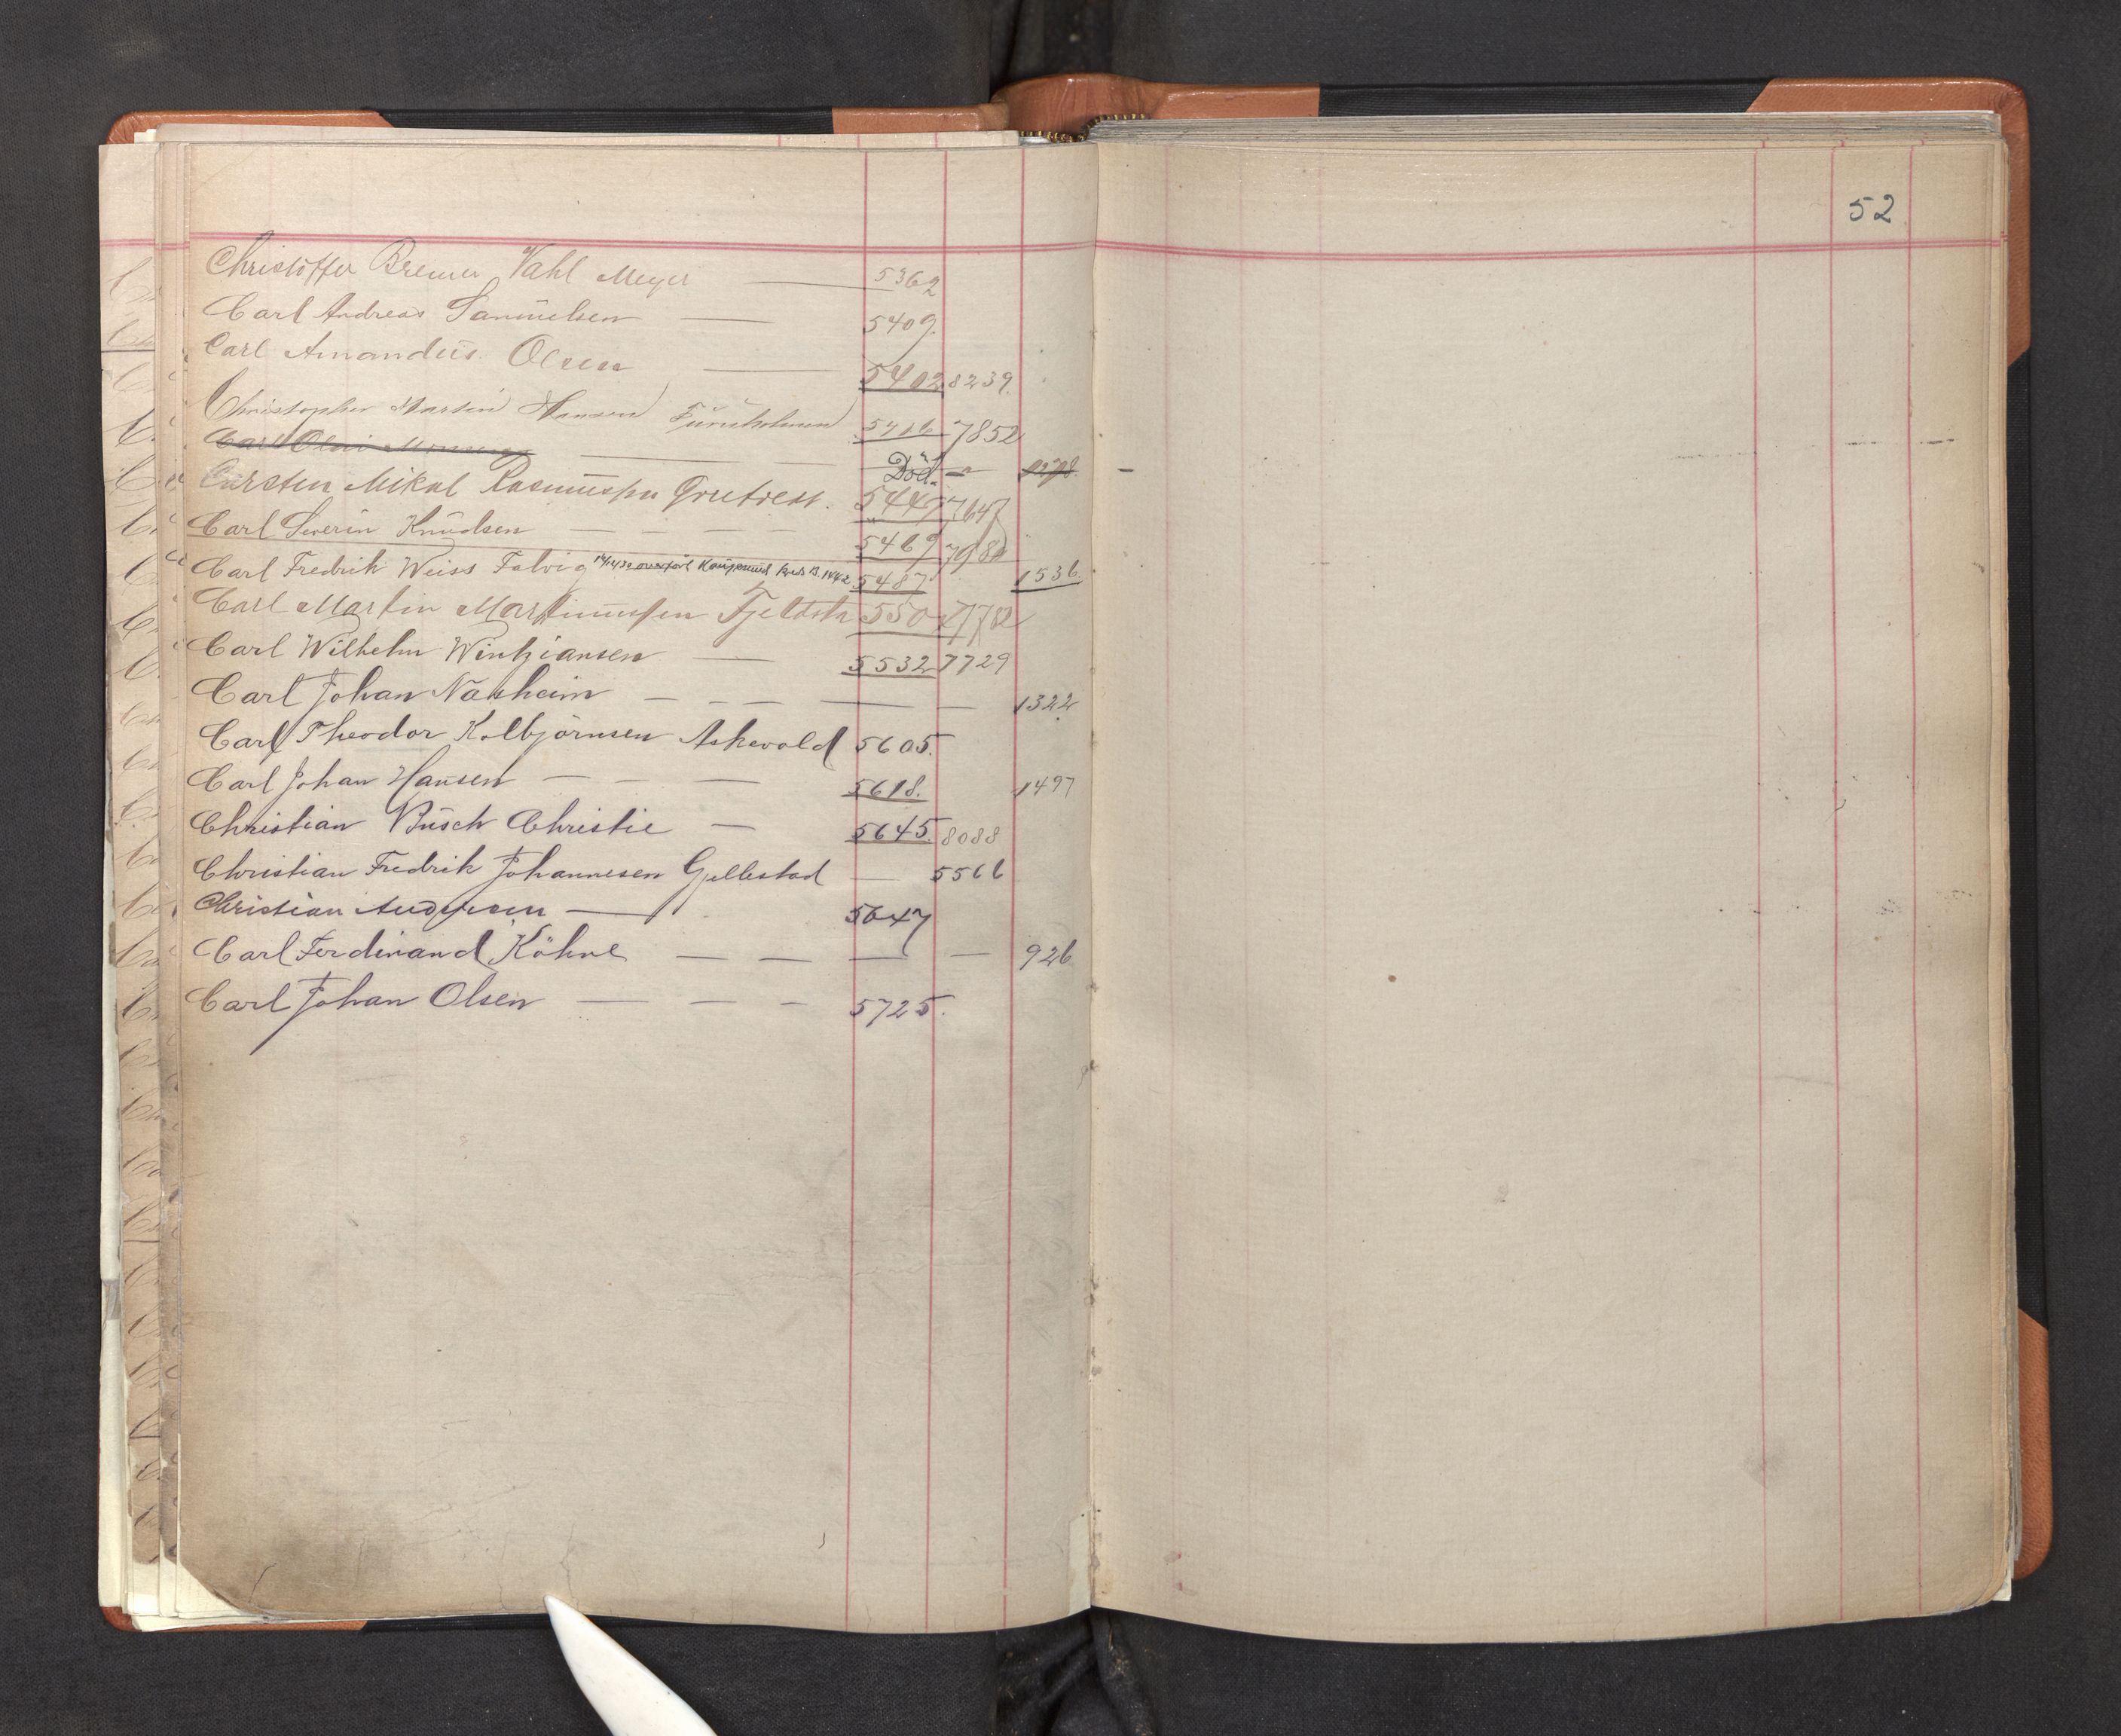 52
Christoffer Bremer Vahl Meyer — 5362
Carl Andreas Samuelsen — 5409.
Carl Amandus Olsen — 5402 8239.
Christopher Martin Hansen Furuholmen 5416 7852
Carl Olai — Död. —
Carsten Mikal Rasmussen 5447 7647
Carl Severin Knudsen — — — 5469 798
Carl Fredrik Weiss Falvig 5487 1536
Carl Martin Martinussen 550 778
Carl Wilhelm — 5532 7729
Carl Johan Nauheim — — — — — 1322
Carl Theodor Kolbjörnsen Askevold 5605.
Carl Johan Hansen — — — 5618. 1497
Christian Busch Christie — 5645. 8088
Christian Fredrik Johannesen Gjellestad — 5566
Christian Andersen — 5647
Carl Ferdinand Köhne — — — — 926
Carl Johan Olsen — — — 5725.